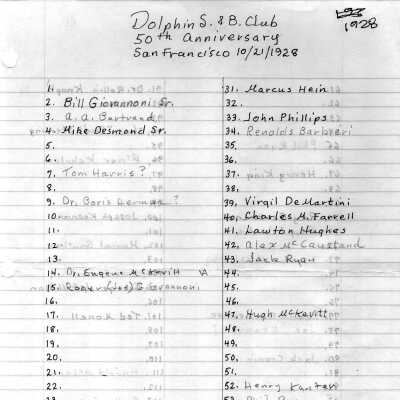 Dolphin S. & B. Club
50th Anniversary
San Francisco 10/21/1928
1928
1.
2. Bill Giovannoni Sr.
3. A. A. Bertrand
4. Mike Desmond Sr.
5.
6.
7. Tom Harris?
8.
9. Dr. Boris ?
10.
11.
12.
13.
14. Dr. Eugene McKevitt
15. (Joe) Giovannoni
16.
17.
18.
19.
20.
21.
22.
31. Marcus Hein
32.
33. John Phillips
34. Renolds Barbieri
35.
36.
37.
38.
39. Virgil DeMartini
40. Charles M. Farrell
41. Lawton Hughes
42. Alex McCausland
43. Jack Ryan
44.
45.
46.
47. Hugh McKevitt
48.
49.
50.
51.
52. Henry Kanter